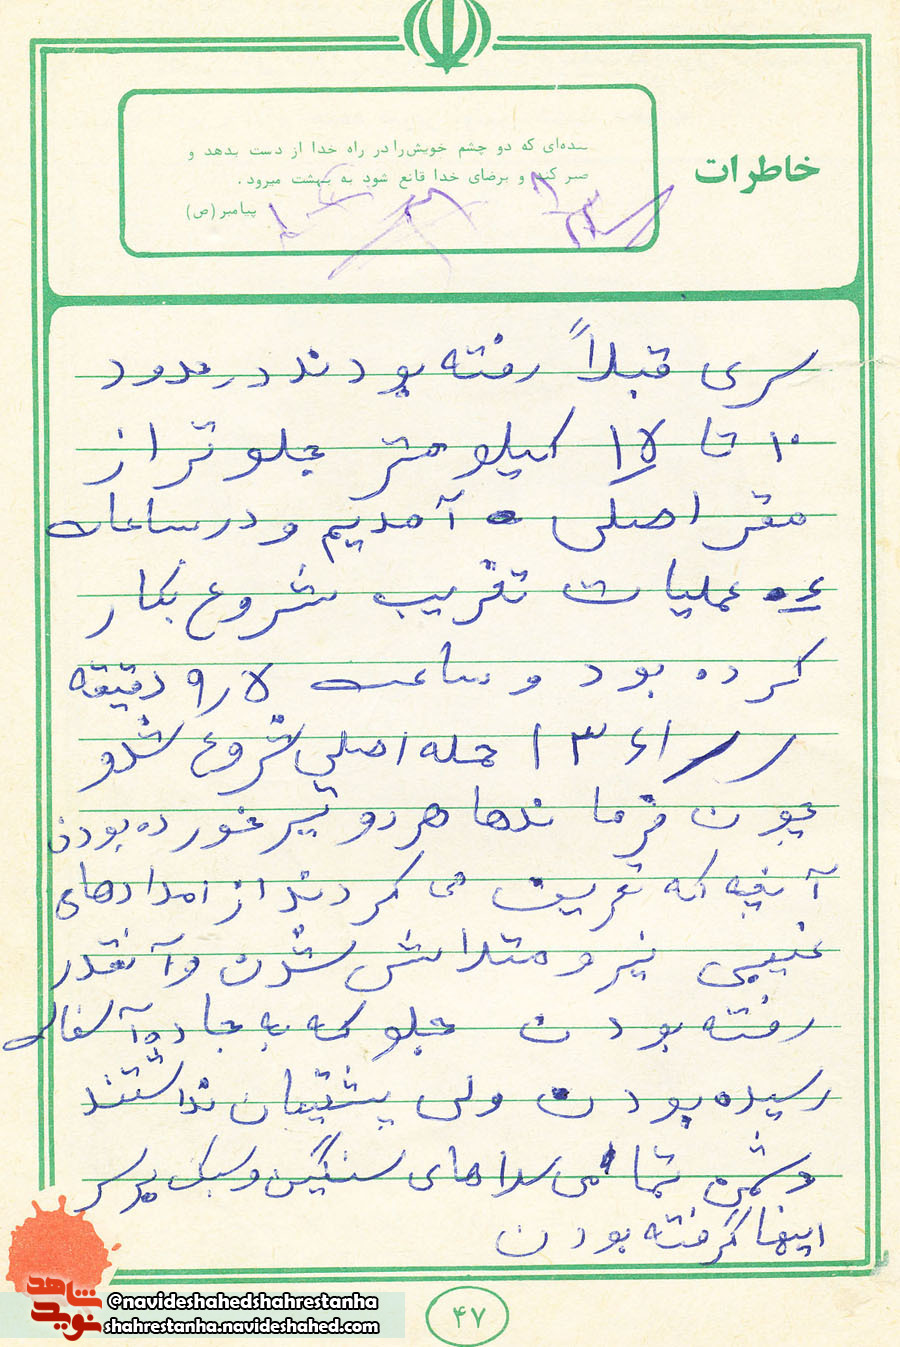 خاطرات
بنده‌ای که دو چشم خویش را در راه خدا از دست بدهد و
صبر کند و برضای خدا قانع شود به بهشت میرود.
پیامبر (ص)
سری قبلاً رفته بودند در حدود
۱۰ تا ۱۵ کیلومتر جلوتر از
مقر اصلی آمدیم و در ساعات
۶ عملیات تقریب شروع بکار
کرده بود و ساعت ۹٫۵ دقیقه
حمله اصلی شروع شد و
چون فرماندها هر دو تیر خورده بودن
آنچه که تعریف می کردند از امدادهای
غیبی نیرو متلاش شدن و آنقدر
رفته بودن جلو که به جاده آسفالت
رسیده بودن ولی پشتیبان نداشتند
دشمن تمامی سلاهای سنگین و سبک بر سر
اینها گرفته بودن
۴۷
شاهد
نوید
@navideshahedshahrestanha
shahrestanha.navideshahed.com